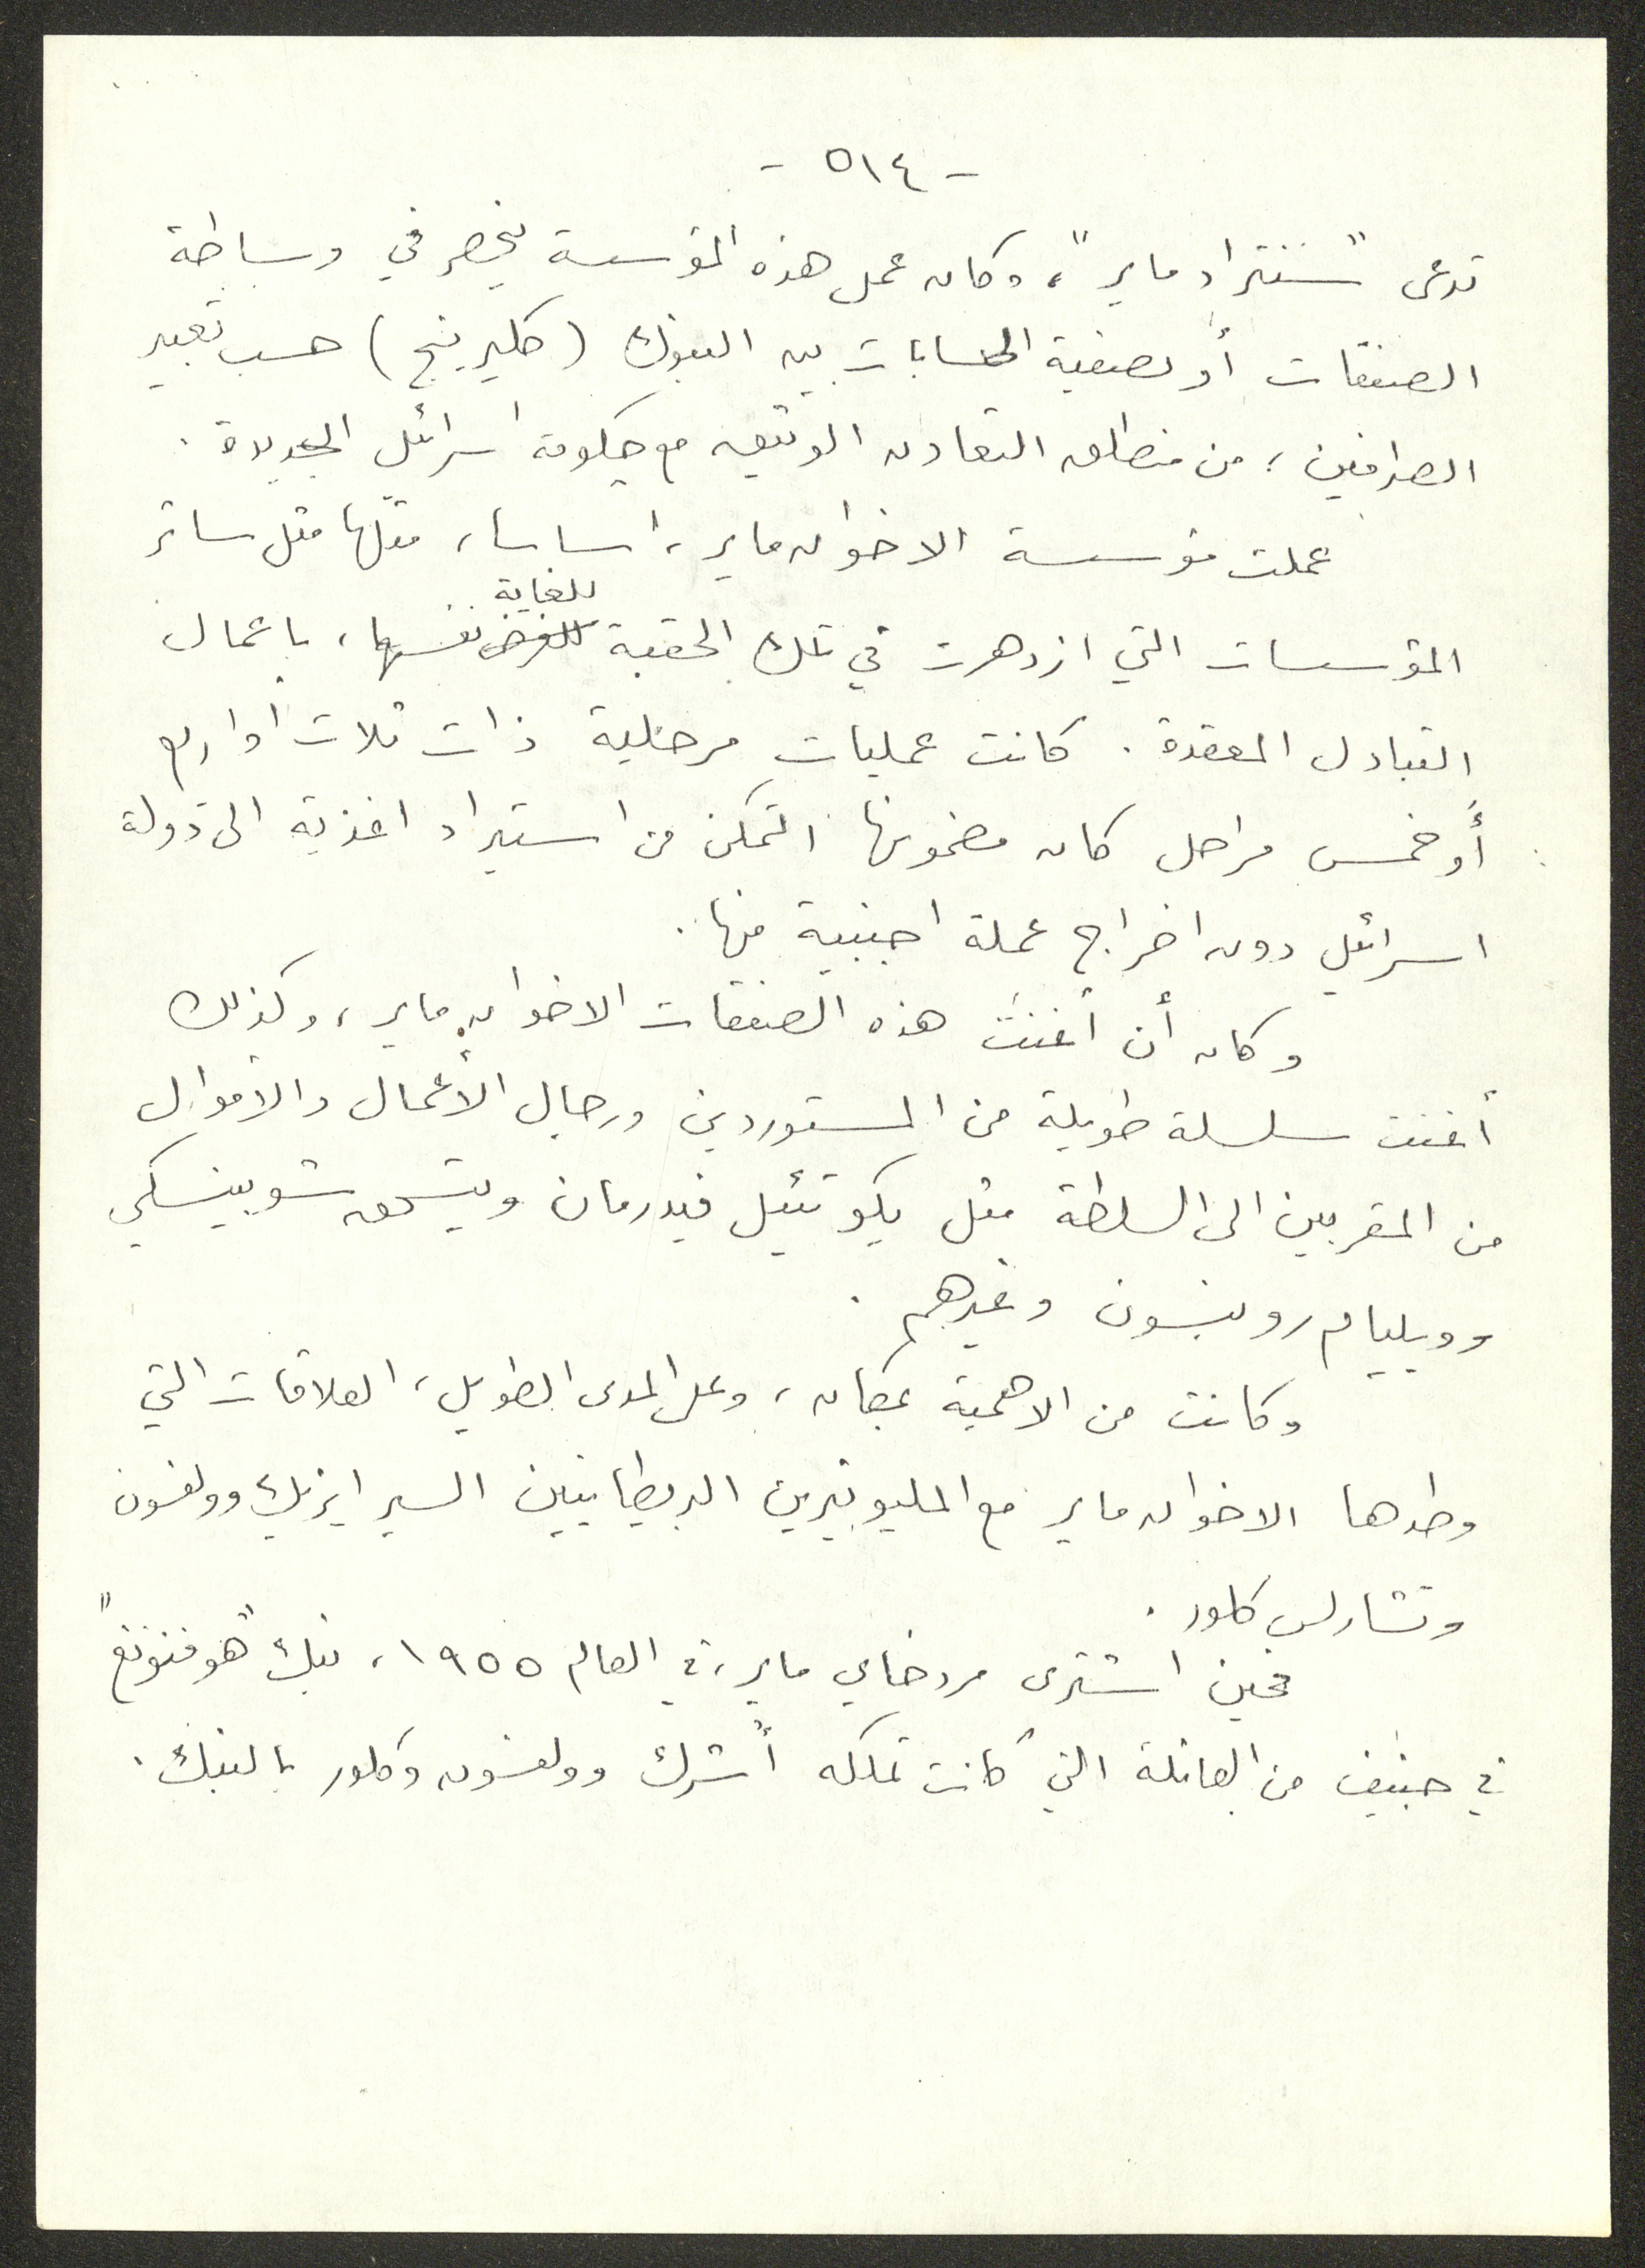 - ٥١٤ -
تدعى "سنتراد ماير"، وكان عمل هذه المؤسسة ينحصر في وساطة
الصفقات أو تصفية الحسابات بين البنوك (كليرينج) حسب تعبير
الصرافين، من منطلق التعاون الوثيق مع حكومة اسرائيل الجديدة.
عملت مؤسسة الاخوان ماير، اساسا، مثلها مثل سائر
للغاية
المؤسسات التي ازدهرت في تلك الحقبة للغرض نفسها، باعمال
التبادل المعقدة. كانت عمليات مرحلية ذات ثلاث او اربع
أو خمس مراحل كان مضمونها التمكن من استيراد اغذية الى دولة
اسرائيل دون اخراج عملة اجنبية منها.
وكان أن أغنت هذه الصفقات الاخوان ماير، وكذلك
أغنت سلسلة طويلة من المستوردين ورجال الأعمال والأموال
من المقربين الى السلطة مثل يكوتئيل فيدرمان ويتسحق شوبينسكي
وويليام روبنسون وغيرهم.
وكانت من الاهمية بمكان، وعلى المدى الطويل، العلاقات التي
وطدها الاخوان ماير مع المليونيرين البريطانيين السير ايزيك وولفسون
وتشارلس كلور.
فحين اشترى مردخاي ماير، في العام ١٩٥٥، بنك "هوفنونغ"
في جنيف من العائلة التي كانت تملكه أشرك وولفسون وكلور بالبنك.